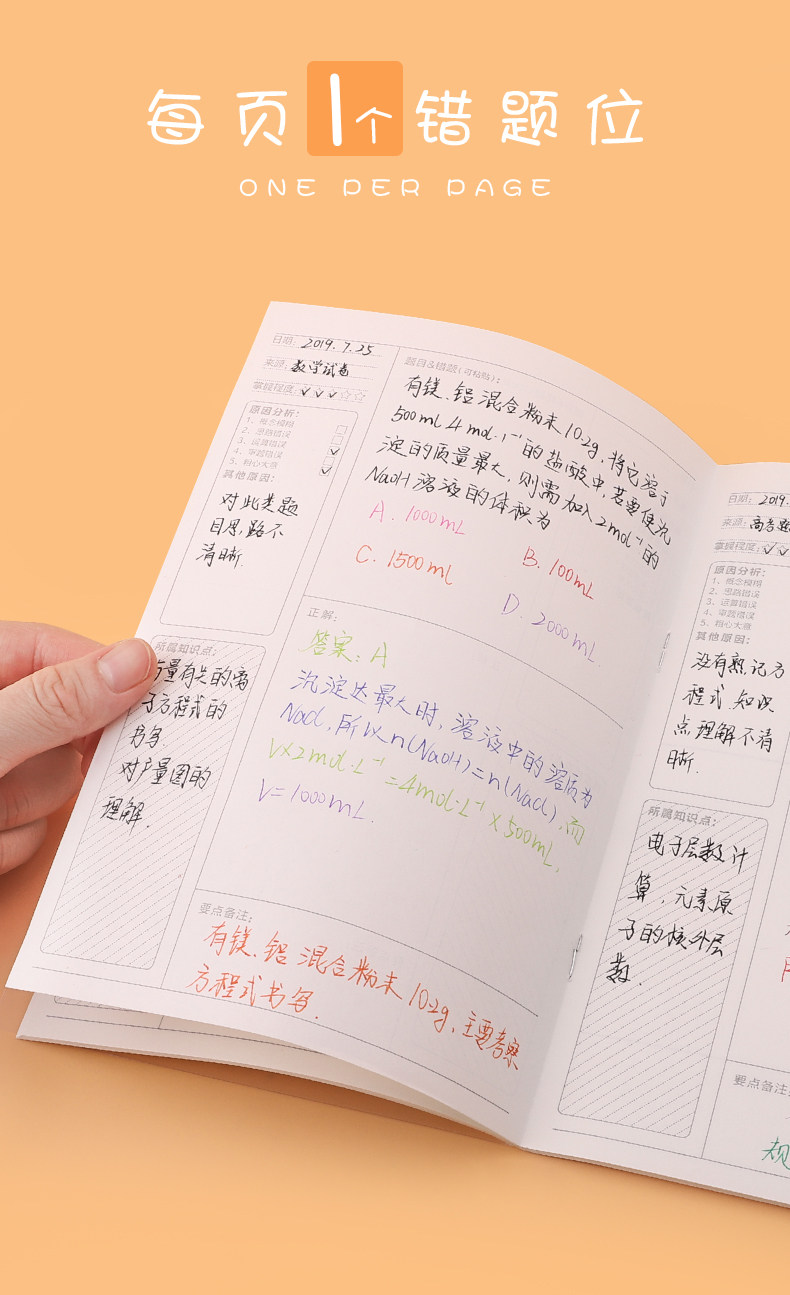 每页1个错题位
ONE PER PAGE
日期: 2019.7.25
来源: 数学试卷
掌握程度:
原因分析:
1、概念模糊
2、思路错误
3、运算错误
4、审题错误
5、粗心大意
其他原因:
对此类题
目思路不
清晰.
所属知识点:
量有关的离
子方程式的
书写.
对产量图的
理解.
题目&错题(可粘贴):
有镁、铝混合粉末10.2g,将它溶于
500mL 4mol·l⁻¹的盐酸中,若要使沉
淀的质量最大,则需加入2mol·l⁻¹的
NaOH溶液的体积为
A. 1000mL
B. 100mL
C. 1500mL
D. 2000mL.
正解:
答案: A
沉淀达最大时,溶液中的溶质为
Nacl,所以n(NaOH)=n(Nacl),而
V×2mol·L⁻¹=4mol·L⁻¹×500mL.
V=1000mL.
要点备注:
有镁、铝混合粉末10.2g,主要考察
方程式书写.
日期: 2019.
来源: 高考题
掌握程度:
原因分析:
1、概念模糊
2、思路错误
3、运算错误
4、审题错误
5、粗心大意
其他原因:
没有熟记方
程式,知识
点理解不清
晰.
所属知识点:
电子层数计
算,元素原
子的核外层
数.
要点备注: